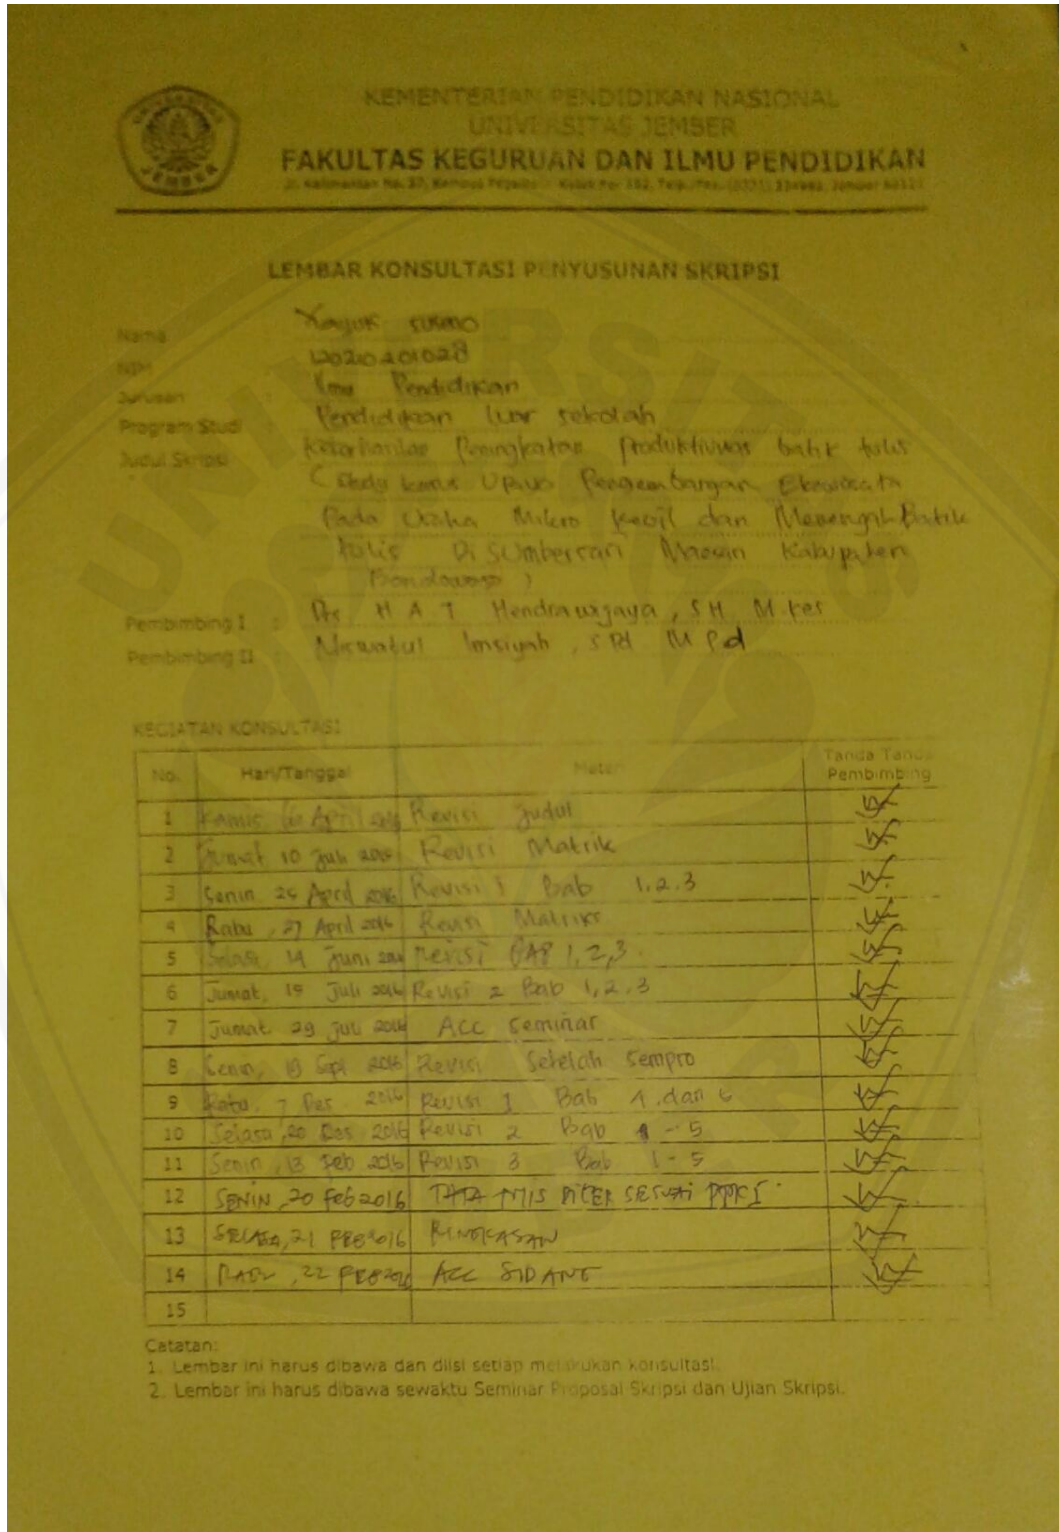 UNIVERSITAS
JEMBER
KEMENTERIAN PENDIDIKAN NASIONAL
UNIVERSITAS JEMBER
FAKULTAS KEGURUAN DAN ILMU PENDIDIKAN
Jl. Kalimantan No. 37, Kampus
LEMBAR KONSULTASI PENYUSUNAN SKRIPSI
Nama
NIM
Jurusan : Ilmu Pendidikan
Program Studi : Pendidikan luar sekolah
Judul Skripsi Peningkatan produktivitas batik tulis
Pengembangan Ekowisata
Pada Usaha Mikro Kecil dan Menengah Batik
tulis Di Sumbersari Maesan Kabupaten
Bondowoso )
Pembimbing I : Drs H A T Hendrawijaya, SH M.Kes
Pembimbing II : Niswatul Imsiyah, S Pd M Pd
KEGIATAN KONSULTASI
No. Hari/Tanggal Materi Tanda Tangan
Pembimbing
1 Kamis, 16 April Revisi Judul
2 Jumat 10 Juli Revisi Matrik
3 Senin 25 April 2016 Revisi 1 Bab 1,2,3
4 Rabu, 27 April 2016 Revisi
5 Selasa, 14 Juni Revisi BAB 1,2,3
6 Jumat, 15 Juli 2016 Revisi 2 Bab 1,2,3
7 Jumat 29 Juli 2016 ACC Seminar
8 Senin, 19 Sept 2016 Revisi Setelah Sempro
9 Rabu, 7 Des 2016 Revisi 1 Bab 4 dan
10 Selasa, 20 Des 2016 Revisi 2 Bab - 5
11 Senin, 13 Feb 2016 Revisi 3 Bab 1 - 5
12 SENIN, 20 Feb 2016 TATA SESUAI PPKI
13 SELASA, 21 FEB 2016 RINGKASAN
14 RABU, 22 FEB ACC SIDANG
15
Catatan:
1. Lembar ini harus dibawa dan diisi setiap melakukan konsultasi.
2. Lembar ini harus dibawa sewaktu Seminar Proposal Skripsi dan Ujian Skripsi.